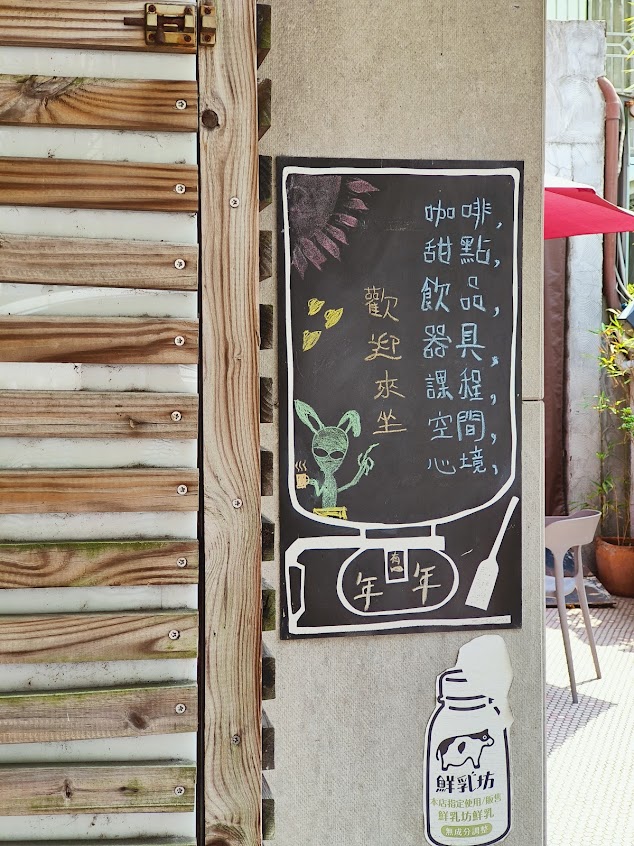 咖啡,
甜點,
飲品,
器具,
課程,
空間,
心境,
歡迎來坐
年有一年
鮮乳坊
本店指定使用/販售
鮮乳坊鮮乳
無成分調整